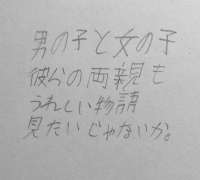 男の子と女の子
彼らの両親も
うれしい物語
見たいじゃないか。